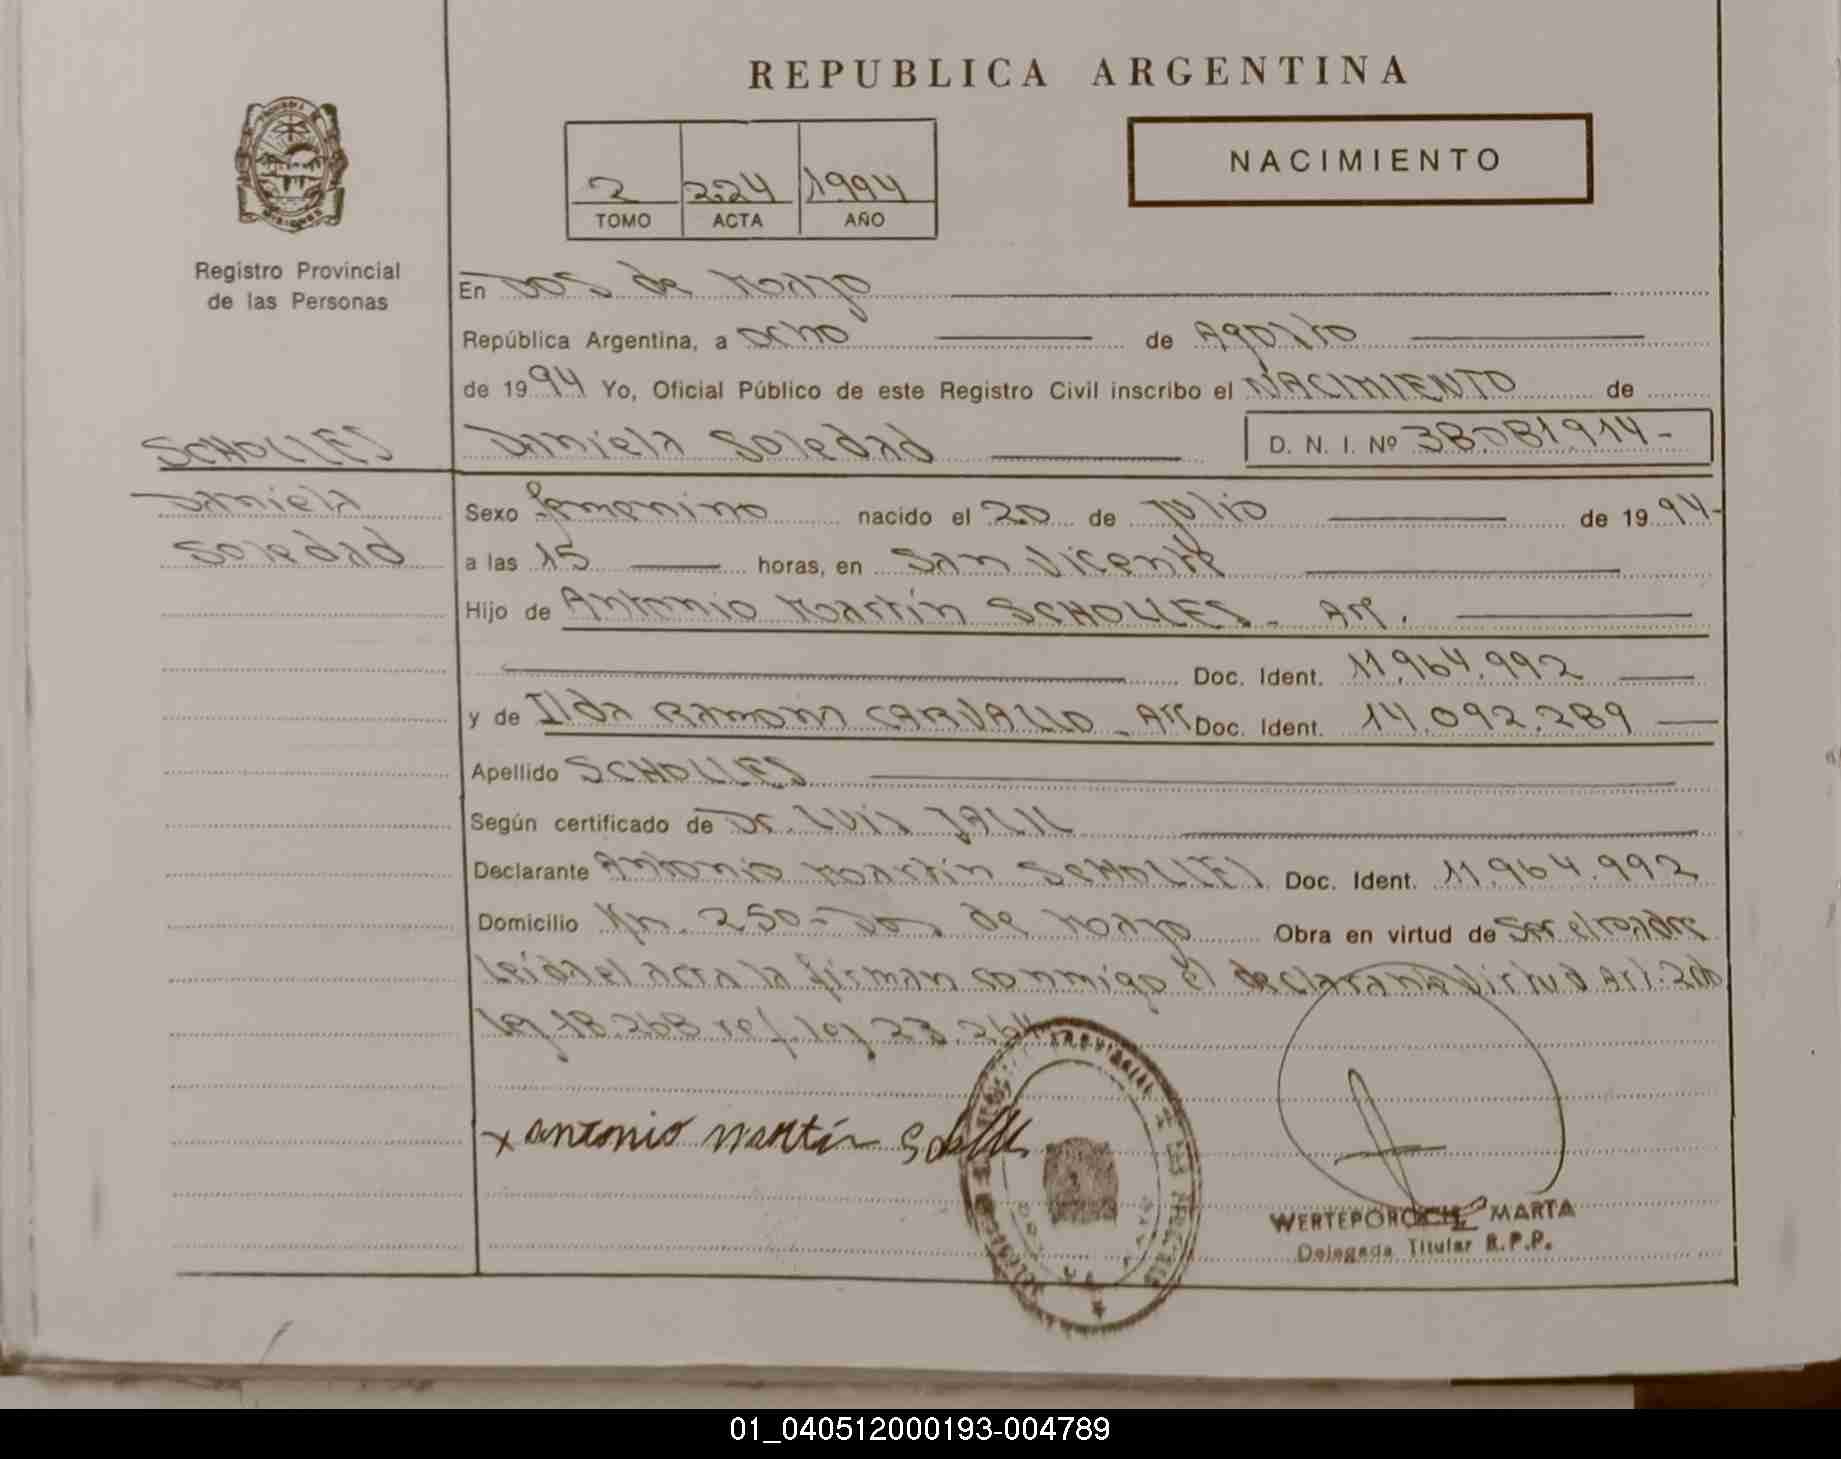 REPUBLICA ARGENTINA
NACIMIENTO
2 224 1994
TOMO ACTA AÑO
Registro Provincial
de las Personas
En Dos de Mayo
República Argentina, a ocho de Agosto
de 1994 Yo, Oficial Público de este Registro Civil inscribo el NACIMIENTO de
SCHOLLES Daniela Soledad D. N. I. Nº 38.081.914-
Daniela
Soledad
Sexo femenino nacido el 20 de Julio de 1994-
a las 15 horas, en San Vicente
Hijo de Antonio Martín SCHOLLES - Arg.
Doc. Ident. 11.964.992
y de Ilda Ramona CARVALLO - Arg Doc. Ident. 14.092.289
Apellido SCHOLLES
Según certificado de Dr. Luis JALIL
Declarante Antonio Martín SCHOLLES Doc. Ident. 11.964.992
Domicilio Km. 250 - Dos de Mayo Obra en virtud de Ser el padre
Leida el acta la firman conmigo el declarante virtud Art.
ley 18.268 ref. ley 23.264
x antonio martín
WERTEPOROCH MARTA
Delegada Titular R.P.P.
01_040512000193-004789